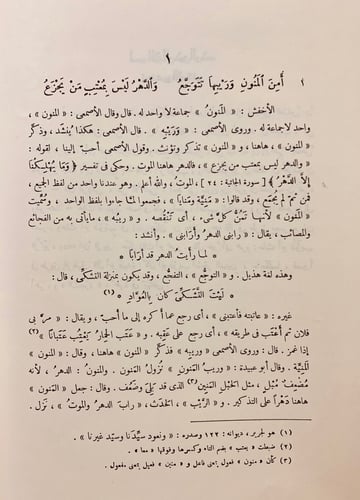 ١
١ أَمِنَ الْمَنُونِ وَرَيْبِهَا تَتَوَجَّعُ وَالدَّهْرُ لَيْسَ بِمُعْتِبٍ مَنْ يَجْزَعُ
الأخفش : « المَنونُ » جماعة لا واحد له . قال وقال الأصمعى : « المنون » ،
واحد لا جماعة له . وروى الأصمعى : « وَرَيْبِهِ » . قال الأصمعى : هكذا يُنشَد ، وذكَّر
« المنون » ، هاهنا ، و « المنون » تذكر وتؤنث . قال الأصمعى أحب إلينا ، لقوله :
« والدهر ليس بمعتب من يجزع » ، فالدهر هاهنا الموت . وحكى فى تفسير ﴿ وَمَا يُهْلِكُنَا
إِلَّا الدَّهْرُ ﴾ [ سورة الجاثية : ٢٤ ] ، الموتُ ، والله أعلم . وهو عندنا واحد من لفظ الجميع ،
فمن ثَمَّ لم يُجمَع ، وقد قالوا : « مَنِيَّة ومَنايا » ، فجمعوا لمّا جاءوا بلفظ الواحد . وسُمِّيت
« المَنون » لأنها تَمُنُّ كلَّ شىء ، أى تَنْقُصه . و « ريبه » ، ما يأتى به من الفجائع
والمصائب ، يقال : « رابنى الدهر وأرابنى » . وأنشد :
* لما رأيتُ الدهرَ قد أرَابَا *
وهذه لغة هذيل . و « التوجُّع » ، التفجع ، وقد يكون بمنزلة التَّشكِّى ، قال :
* لَيْتَ التَّشَكِّىَ كان بالعُوَّادِ * (١)
غيره : « عاتبته فأعتبنى » ، أى رجع عما أكره إلى ما أحب ، و يقال : « مرَّ بى
فلان ثم أَعْتَب فى طريقه » ، أى رجع على عَقِبه . و « عَتَب الحِمار يَعْتِب عَتَبانًا » (٢)
إذا غمز . قال : وروى الأصمعى « وريبِه » فذكّر « المنون » هاهنا ، وقال : « المنون »
المَنِيَّة . وقال أبو عبيدة : « وريبُ المَنون » نُزول المَنون . والمَنون : الدهر ، لأنه
مُضْعِفٌ مُبْلٍ ، مثل الحَبْل المَنِين (٣) الذى قد بَلِىَ وضَعُف . وقال : جعل « المَنون »
هاهنا دَهرًا على التذكير . و « الرَّيْبُ » ، الحَدَث ، « رابَ الدهرُ والموتُ » ، نَزَل .
(١) هو لجرير ، ديوانه : ١٢٢ وصدره : « ونعود سيِّدَنا وسيّد غيرنا » .
(٢) ضبطت « يعتب » بضم التاء وكسرها وفوقها « معا » .
(٣) كأن « منون » فعول بمعنى فاعل و « منين » فعيل بمعنى مفعول .